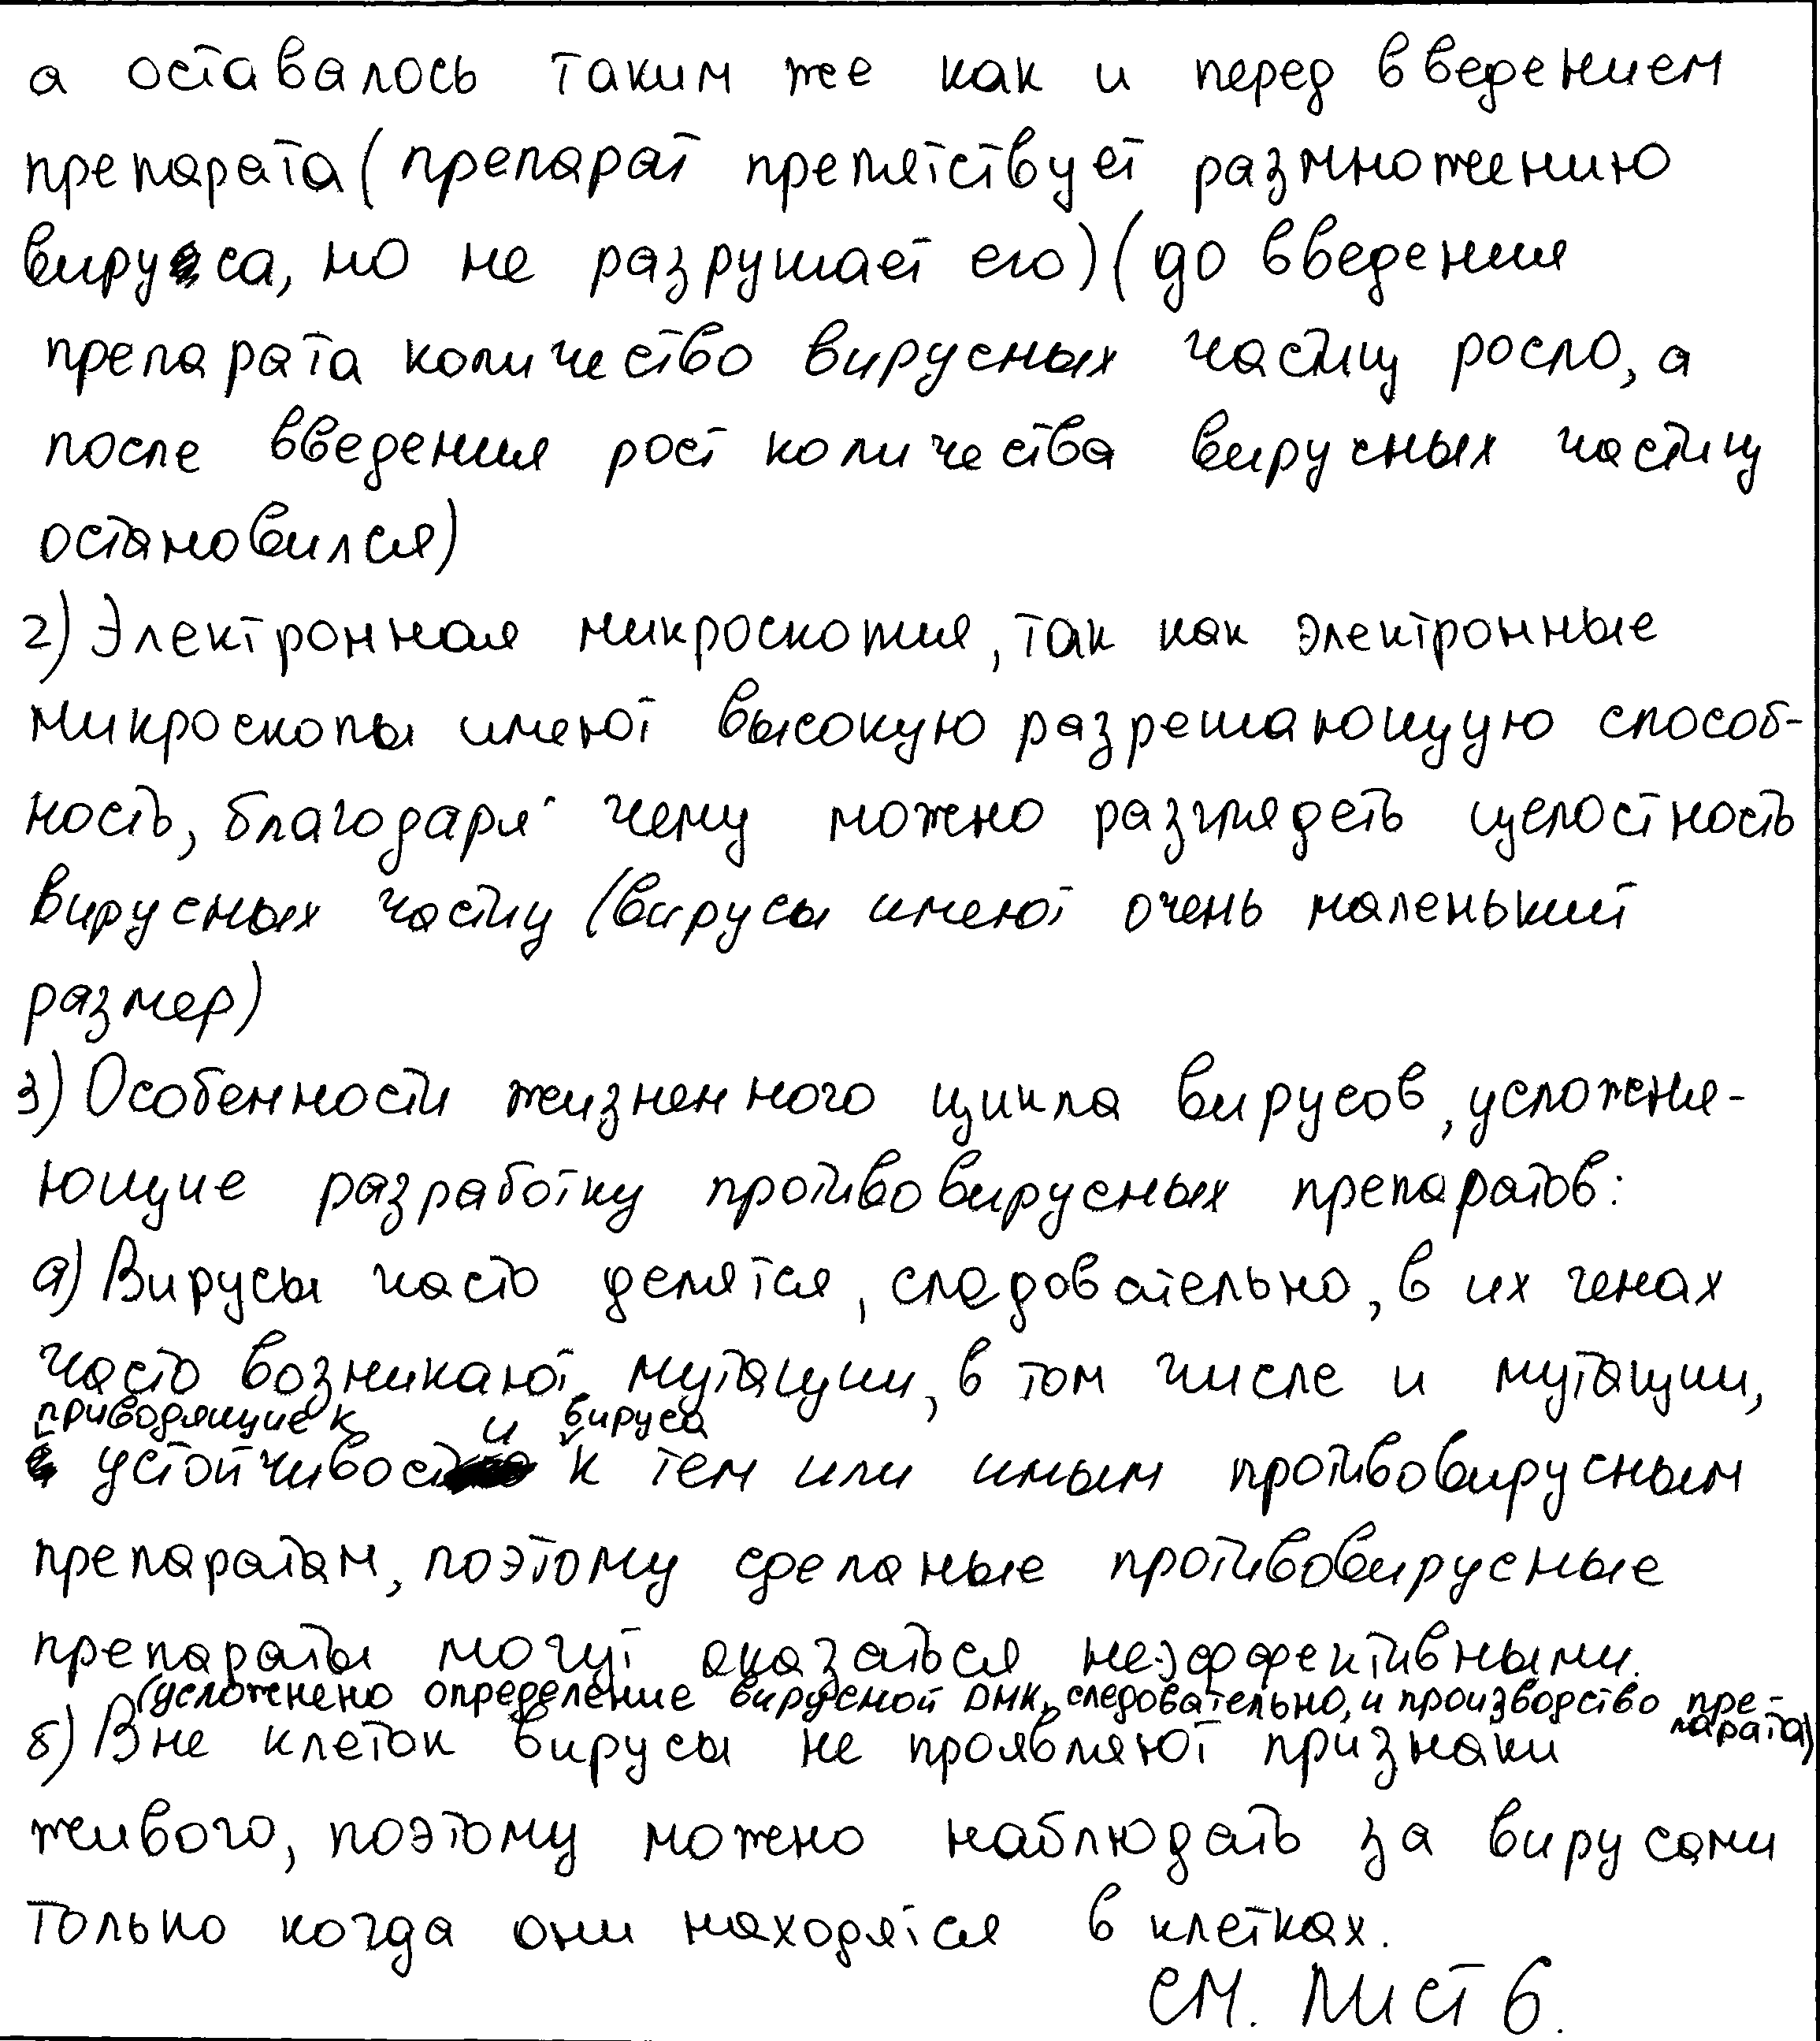 а оставалось таким же как и перед введением
препарата (препарат препятствует размножению
вируса, но не разрушает его) (до введения
препарата количество вирусных частиц росло, а
после введения рост количества вирусных частиц
остановился)
2) Электронная микроскопия, так как электронные
микроскопы имеют высокую разрешающую способ-
ность, благодаря чему можно разглядеть целостность
вирусных частиц (вирусы имеют очень маленький
размер)
3) Особенности жизненного цикла вирусов, усложня-
ющие разработку противовирусных препаратов:
а) Вирусы часто делятся, следовательно, в их генах
часто возникают мутации, в том числе и мутации,
приводящие к устойчивости вируса к тем или иным противовирусным
препаратам, поэтому сделаные противовирусные
препараты могут оказаться неэффективными.
(усложнено определение вирусной ДНК, следовательно, и производство пре-
парата)
б) Вне клеток вирусы не проявляют признаки
живого, поэтому можно наблюдать за вирусами
только когда они находятся в клетках.
см. лист 6.